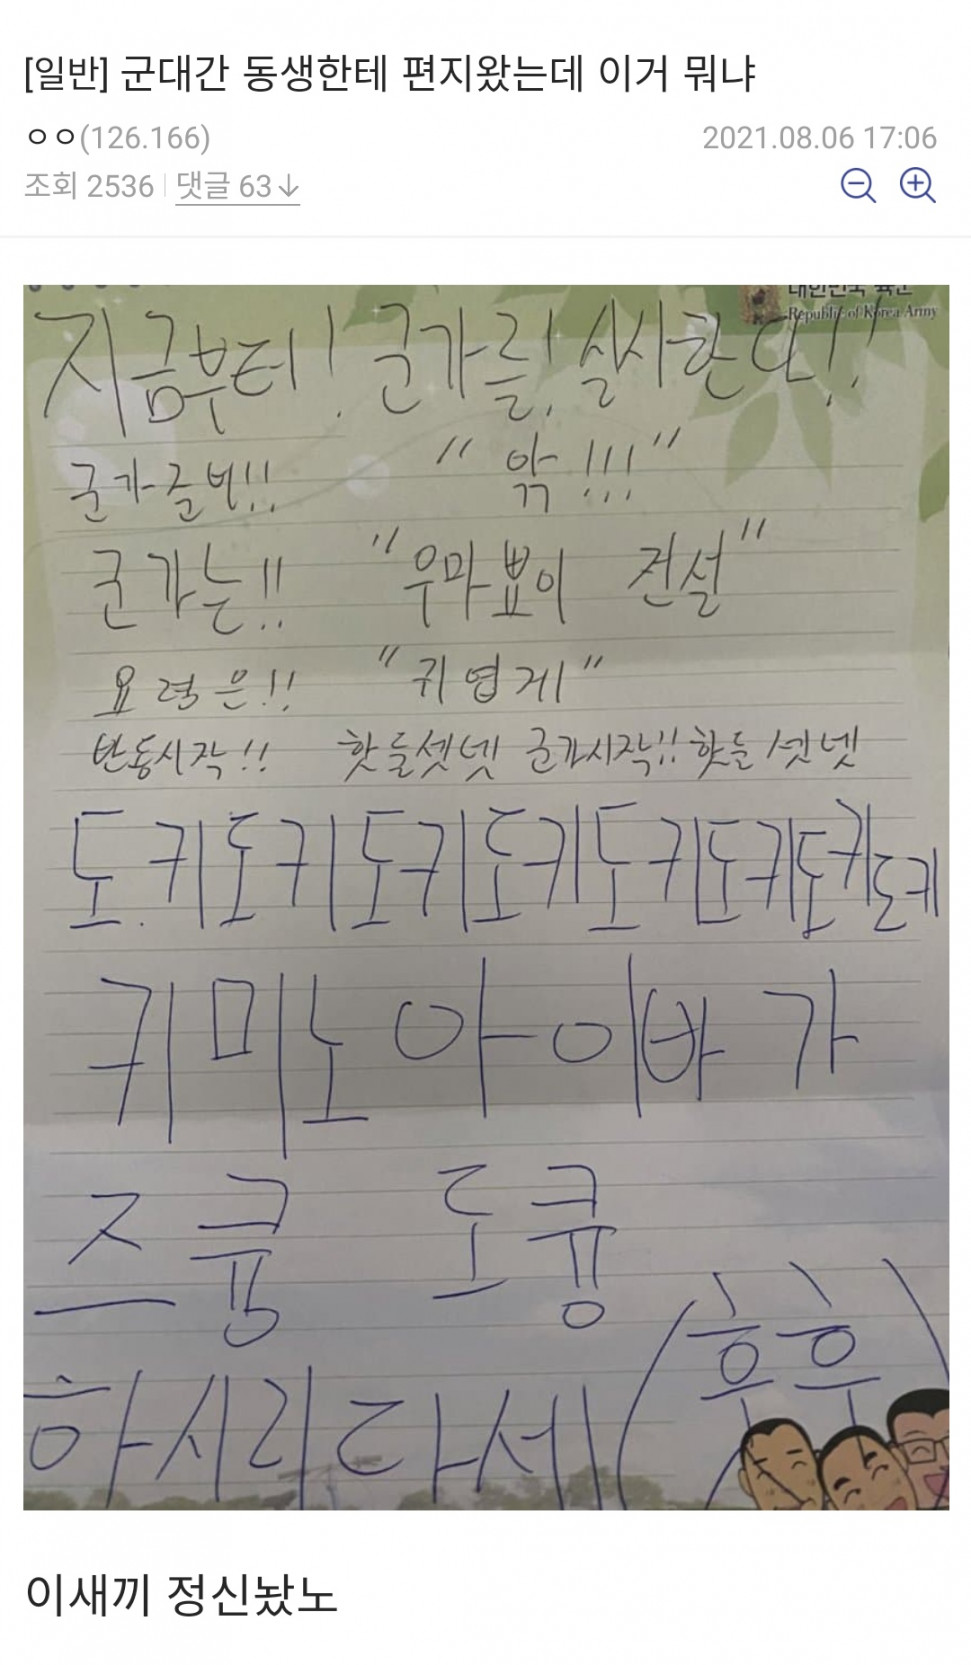 [일반] 군대간 동생한테 편지왔는데 이거 뭐냐
ㅇㅇ(126.166)
2021.08.06 17:06
조회 2536 | 댓글 63↓
대한민국 육군
Republic of Korea Army
지금부터! 군가를! 실시한다!!
군가준비!! "악!!!"
군가는!! "우마뾰이 전설"
요령은!! "귀엽게"
반동시작!! 핫둘셋넷 군가시작!! 핫둘셋넷
도.키도키도키도키도키도키도키도키
키미노아이바가
즈큥 도큥
하시리다세(후후)
이새끼 정신놨노